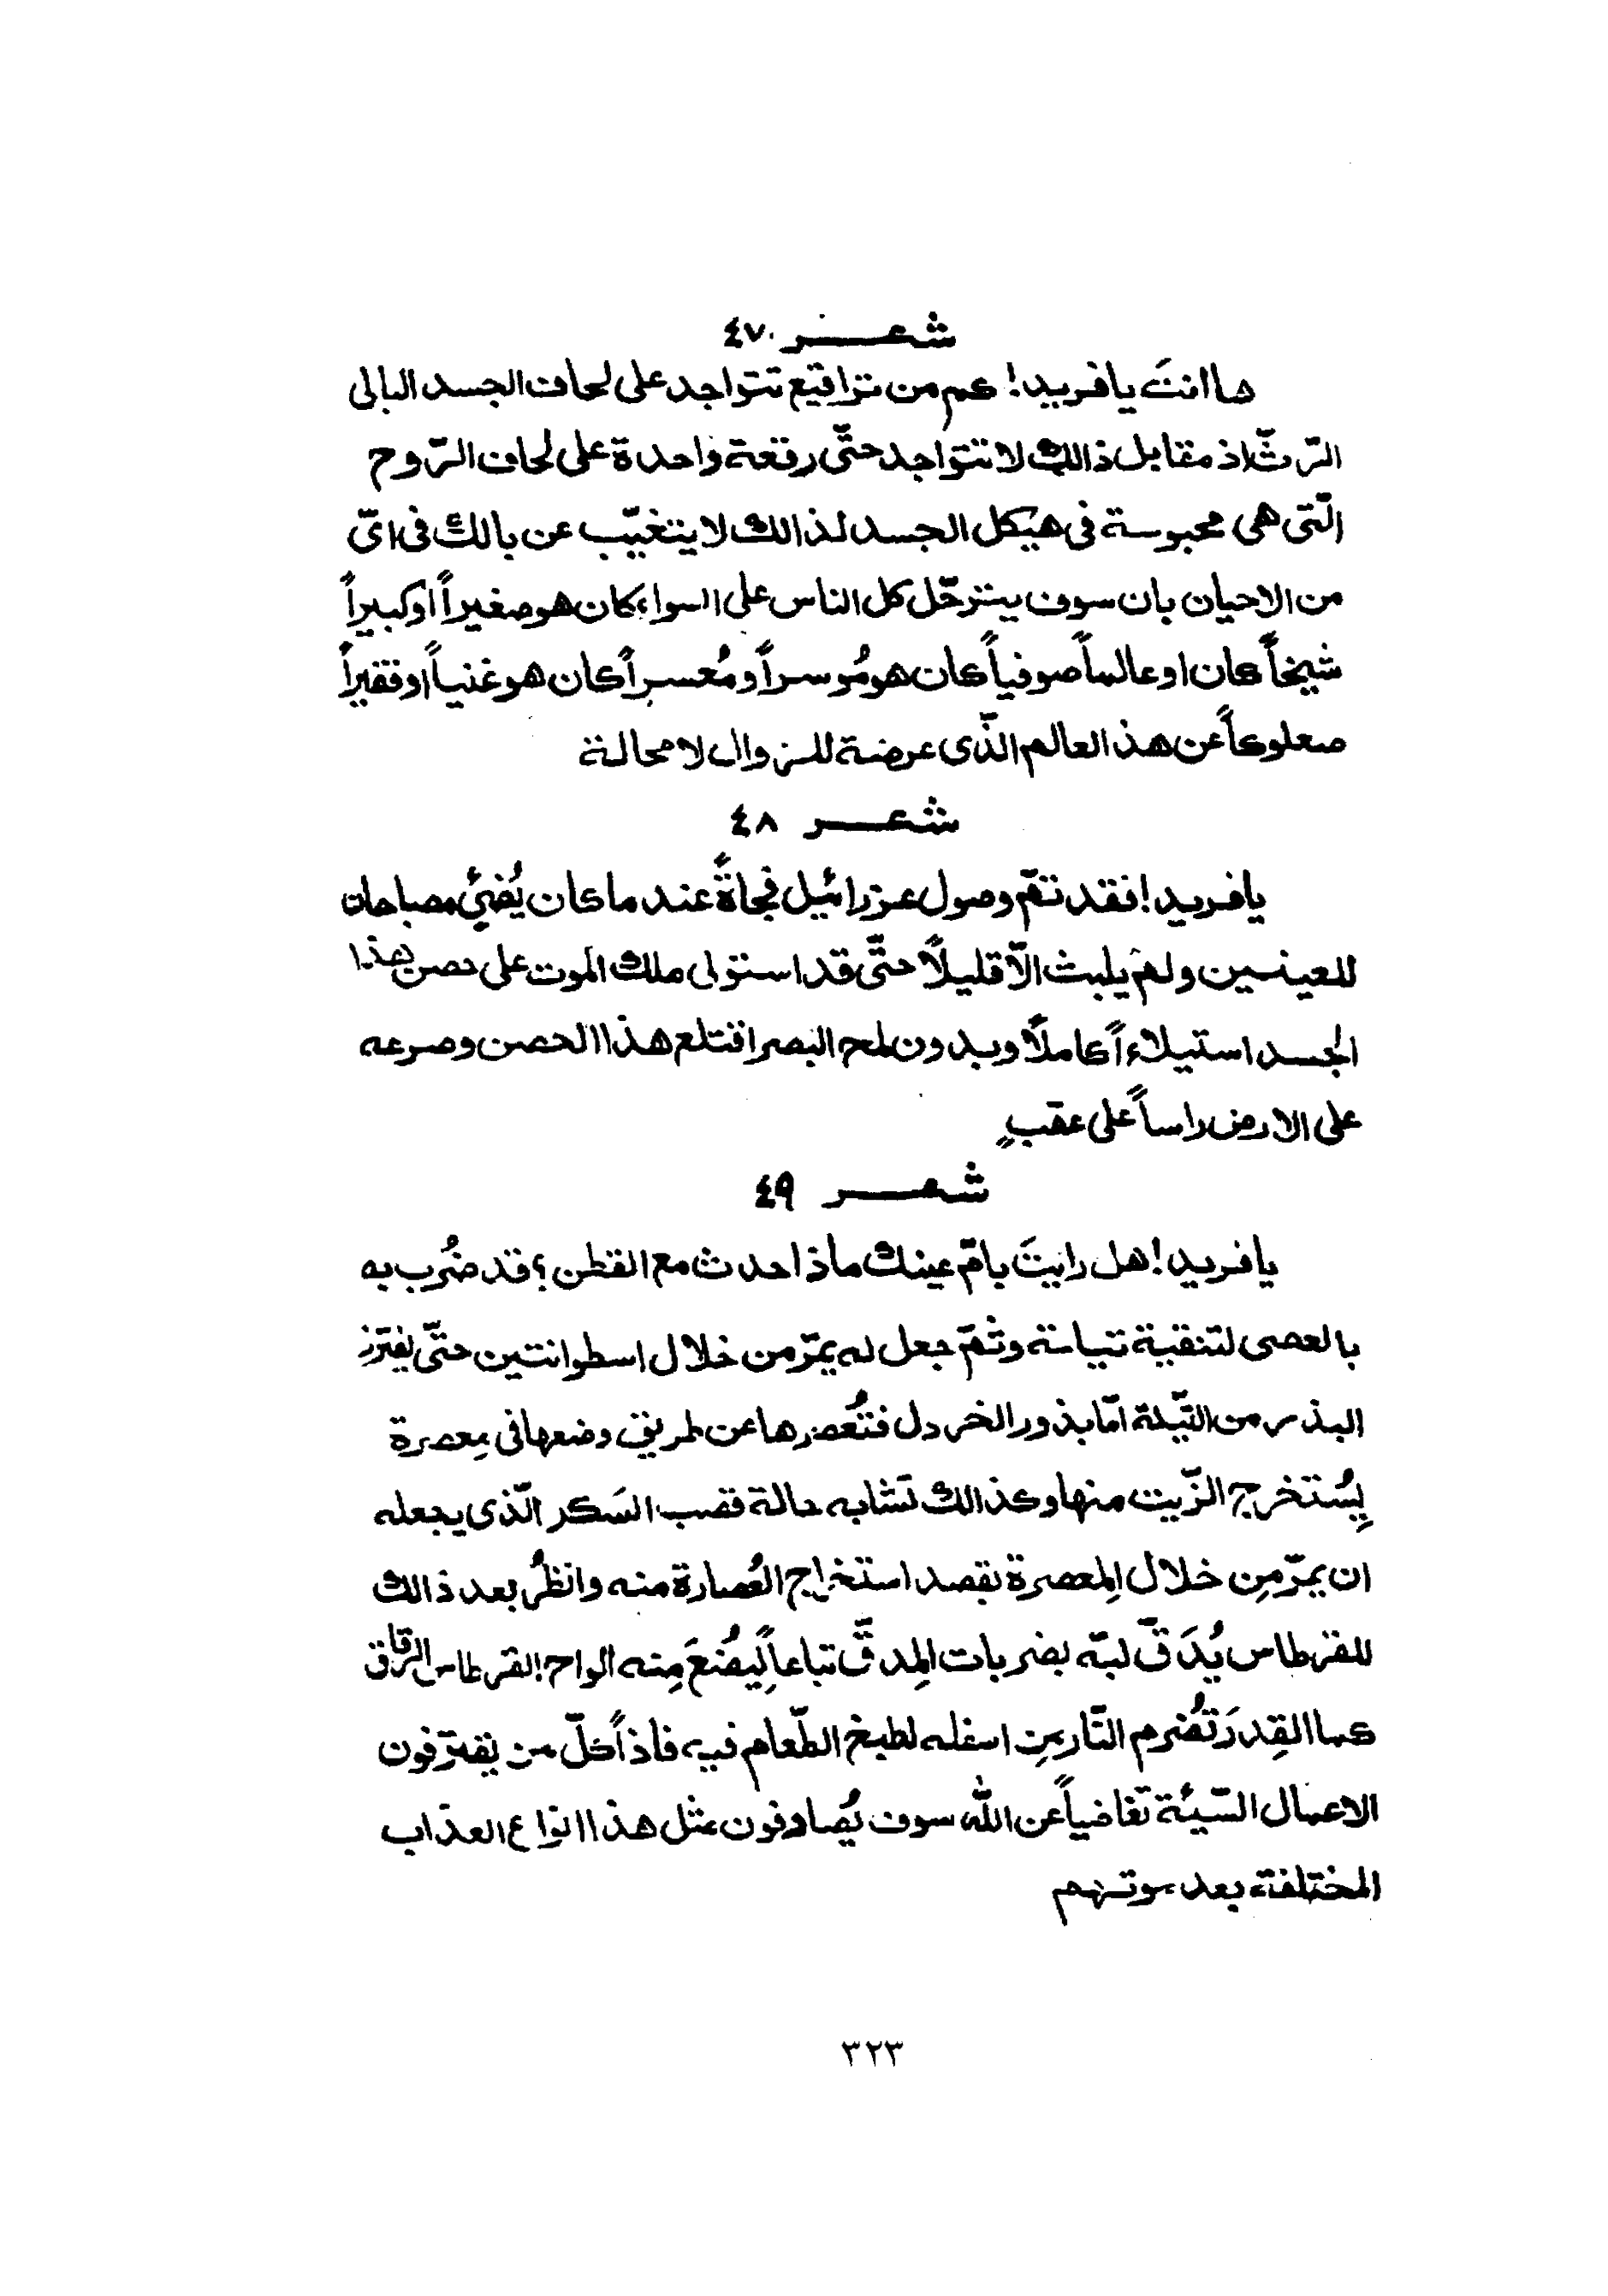 شعر ٤٧
ها انتَ يا فريد! كم من تراقيع تتواجد على لحاف الجسد البالى
الرّثّ اذ مقابل ذالك لا تتواجد حتّى رقعة واحدة على لحاف الرّوح
الّتى هى محبوسة فى هيكل الجسد لذالك لا يتغيّب عن بالك فى اىّ
من الاحيان بان سوف يترحّل كل الناس على السواء كان هو صغيراً او كبيراً
شيخاً كان او عالماً صوفياً كان هو مُوسراً و مُعسراً كان هو غنياً او فقيراً
صعلوكاً عن هذ العالم الذّى عرضة للزوال لا محالة
شعر ٤٨
يا فريد! فقد تمّ وصول عزرائيل فجاةً عند ما كان يُضئُ مصباحان
للعينين ولم يلبث الّا قليلاً حتّى قد استولى ملك الموت على حصن هذا
الجسد استيلاءاً كاملاً وبدون لمح البصر اقتلع هذا الحصن وصرعه
على الارض راساً على عقبٍ
شعر ٤٩
يا فريد! هل رايتَ بامّ عينك ماذا حدث مع القطن؟ قد ضُرب به
بالعصى لتنقية تيلته وثمّ جعل له يمرّ من خلال اسطوانتين حتّى يفترز
البذر من التّيلة امّا بذور الخردل فتُعصرها عن طريق وضعها فى مِعصرة
يِسُتخرج الزّيت منها وكذالك تشابه حالة قصب السَكر الّذى يجعله
ان يمرّ مِن خلال المِعصرة بقصد استخراج العُصارة منه وانظُر بعد ذالك
للقرطاس يُدَقّ لبّه بضربات المِدقّ تباعاً ليُصْنعَ مِنه الواح القرطاس الرّقاق
كما القِدرَ تُضرم النّار مِن اسفله لطبخ الطّعام فيه فاذاً كلّ من يقترفون
الاعمال السّيئة تغاضياً عن اللّٰه سوف يُصادفون مثل هذا انواع العذاب
المختلفة بعد موتهم
٣٢٣